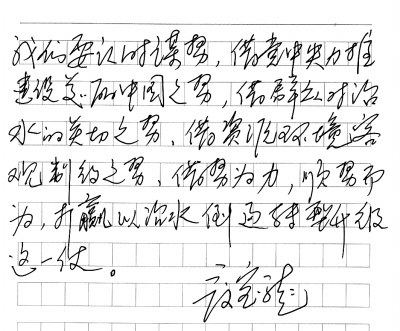 我们要认时谋势，借党中央力推
建设美丽中国之势，借群众对治
水的英切之势、借资源环境客
观制约之势、借势为力，顺势而
为，打赢以治水倒逼转型升级
这一仗。